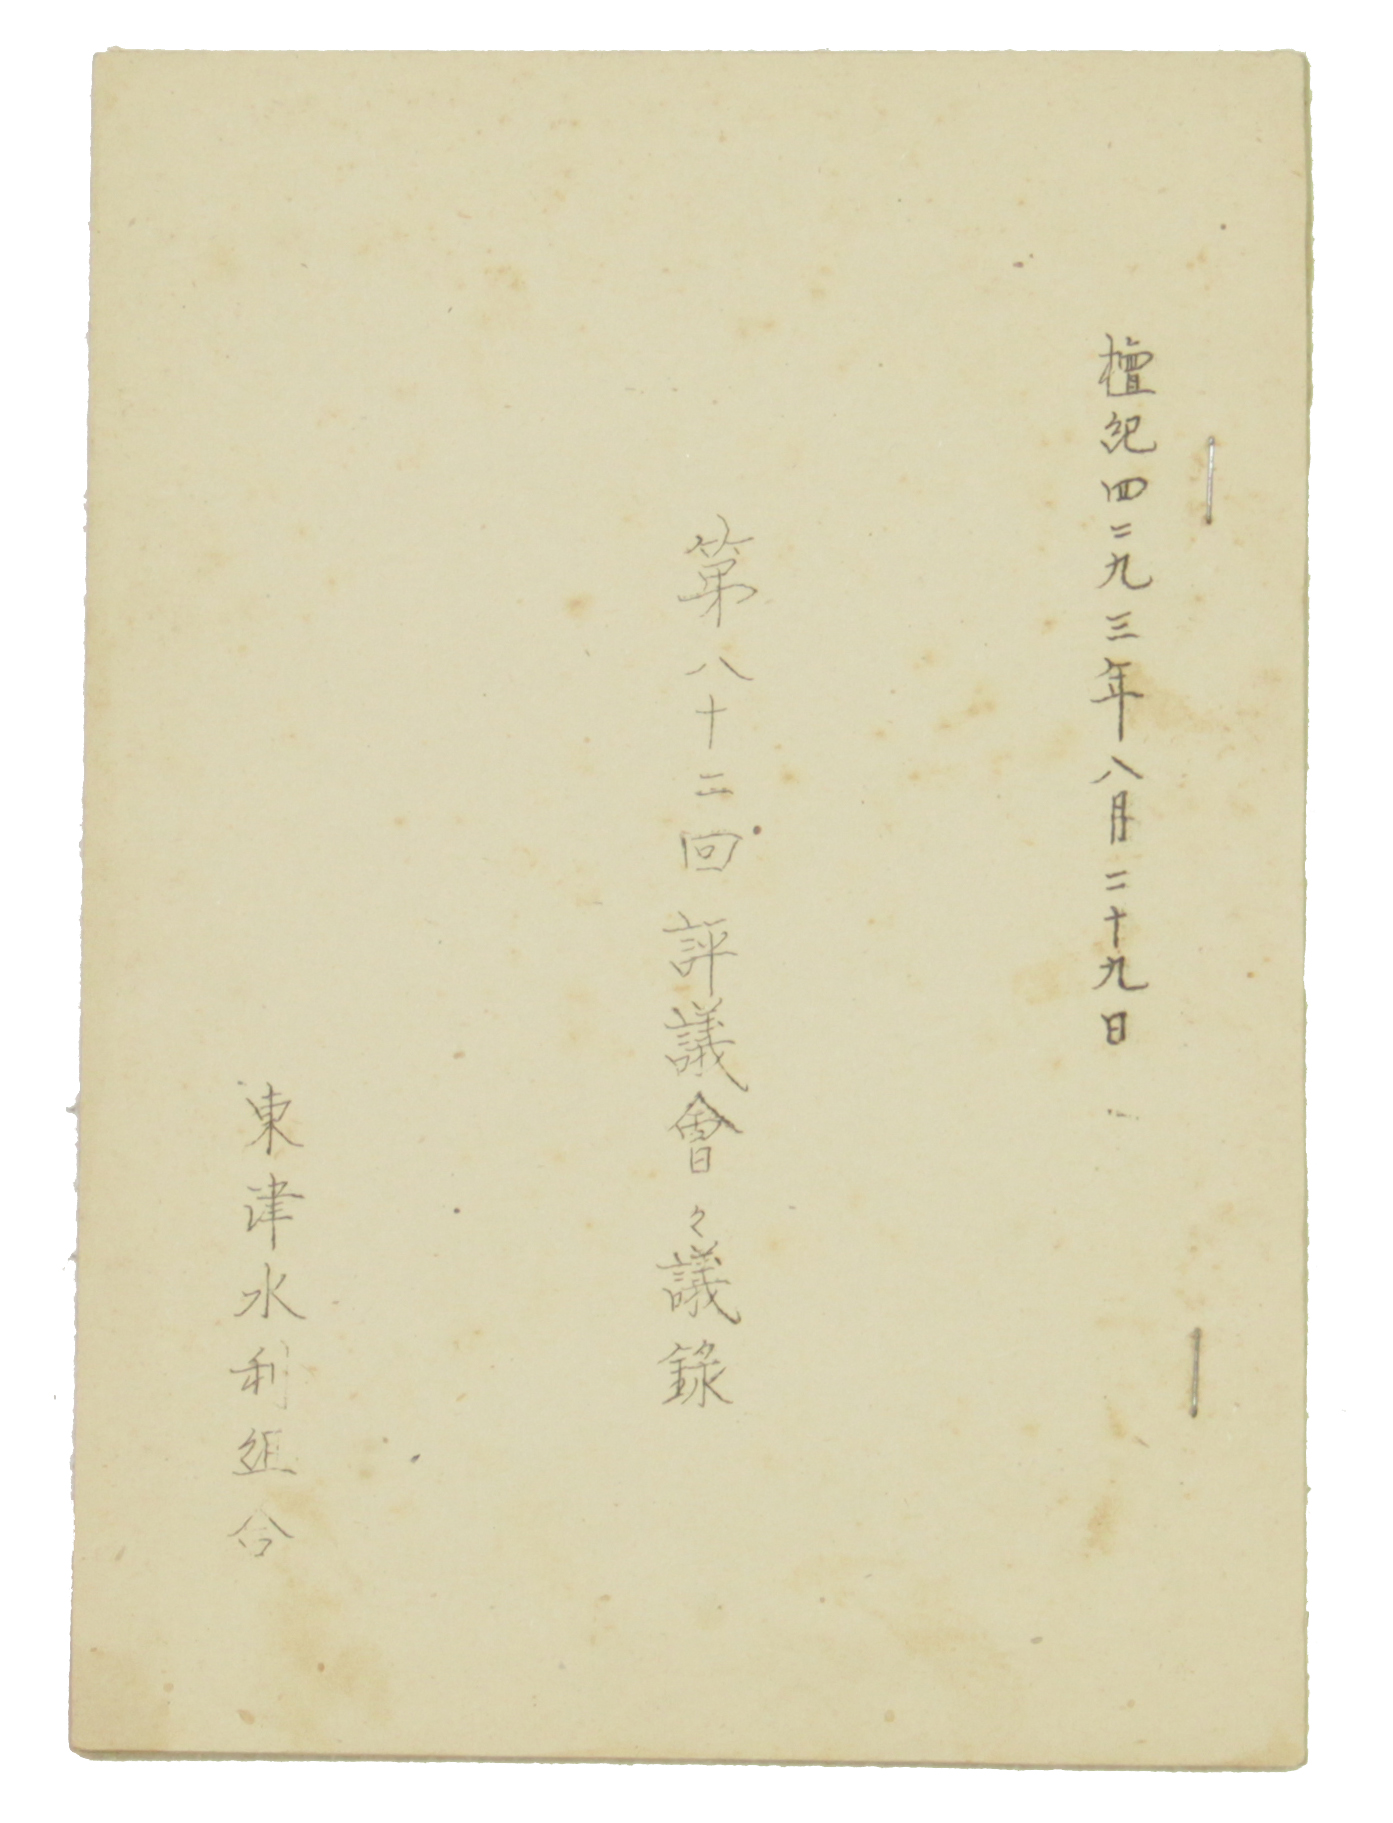 檀紀四二九三年八月二十九日
第八十二回評議會々議錄
東津水利組合